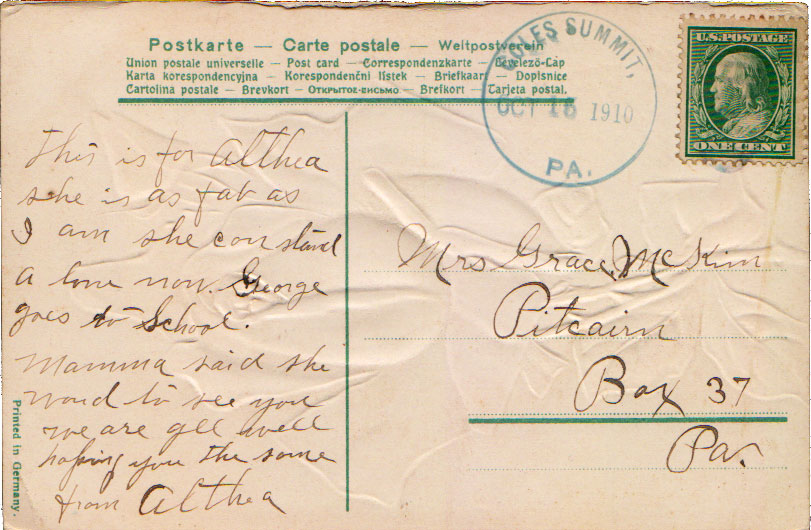 Postkarte — Carte postale — Weltpostverein
Union postale universelle — Post card — Correspondenzkarte — Levelező-Lap
Karta korespondencyjna — Korespondenční lístek — Briefkaart — Dopisnice
Cartolina postale — Brevkort — Открытое письмо — Brefkort — Tarjeta postal.
COLES SUMMIT,
OCT 15 1910
PA.
U.S. POSTAGE
ONE CENT
This is for Althea
she is as fat as
I am she can stand
a lone now. George
goes to School.
Mamma said she
woud to see you
we are all well
hoping you the same
from Althea
Mrs Grace McKim
Pitcairn
Box 37
Pa.
Printed in Germany.